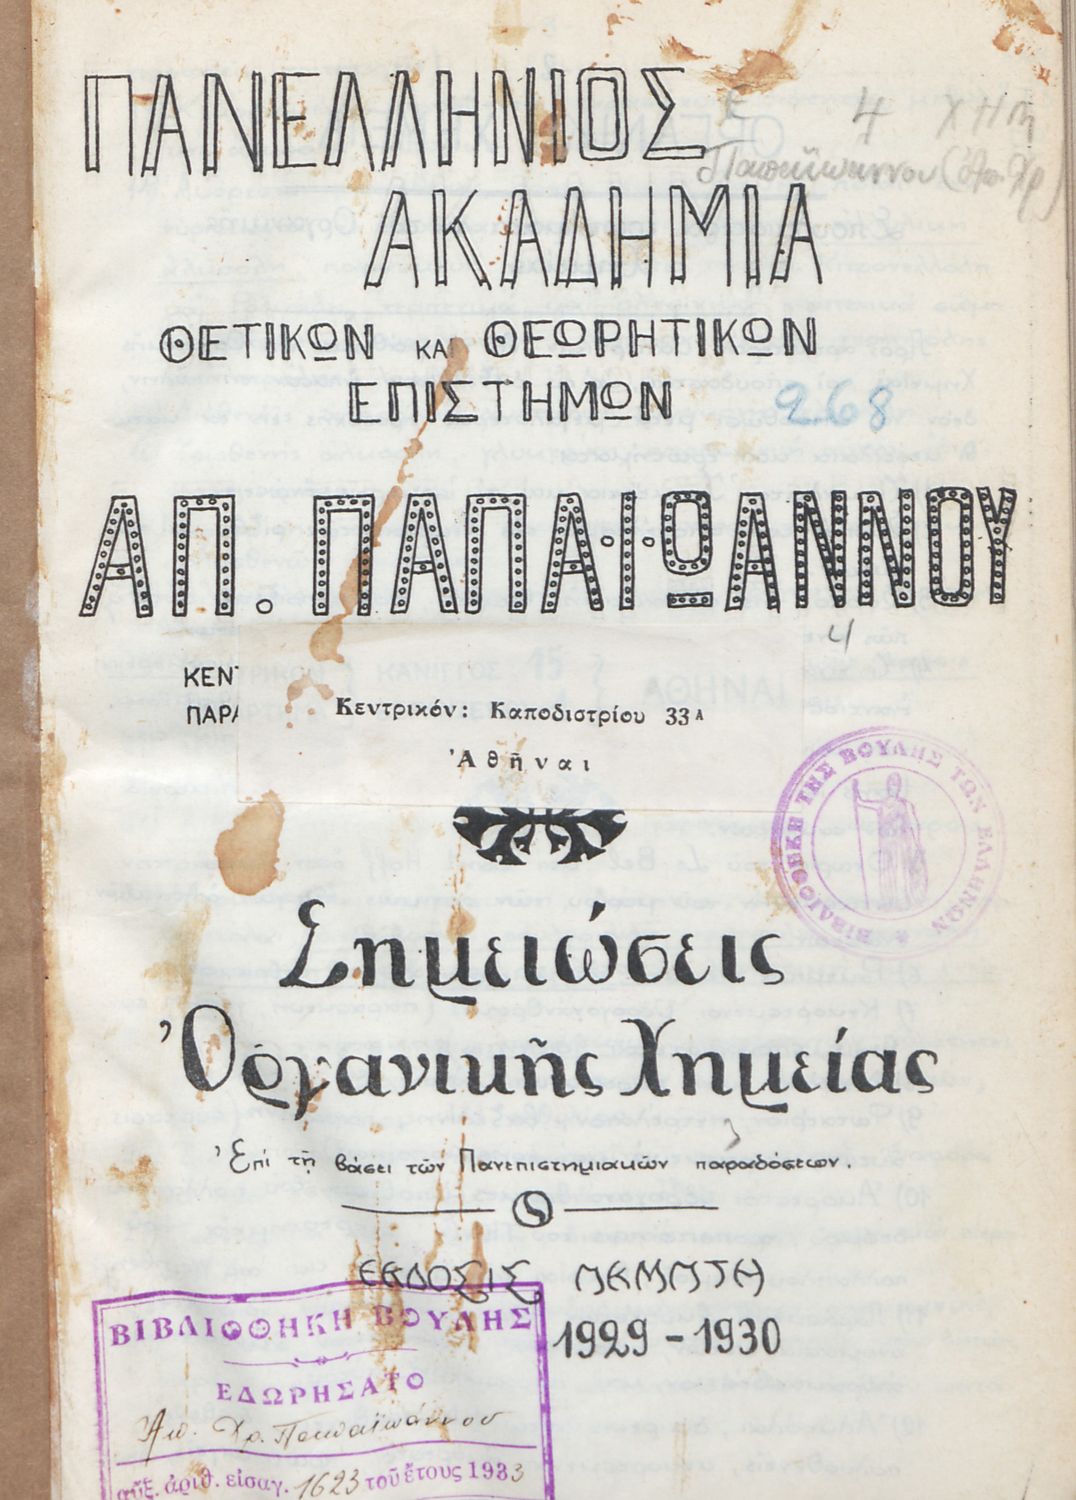 ΠΑΝΕΛΛΗΝΙΟΣ
4 ΧΗΜ
Παπαϊωάννου (Απ. Χρ)
ΑΚΑΔΗΜΙΑ
ΘΕΤΙΚΩΝ ΚΑΙ ΘΕΩΡΗΤΙΚΩΝ
ΕΠΙΣΤΗΜΩΝ
268
ΑΠ. ΠΑΠΑ·Ι·ΩΑΝΝΟΥ
4
ΚΕΝ
ΠΑΡΑ
Κεντρικόν: Καποδιστρίου 33Α
Ἀθῆναι
ΒΙΒΛΙΟΘΗΚΗ ΤΗΣ ΒΟΥΛΗΣ ΤΩΝ ΕΛΛΗΝΩΝ
Σημειώσεις
Ὀργανικῆς Χημείας
Ἐπί τῇ βάσει τῶν Πανεπιστημιακῶν παραδόσεων.
ΕΚΔΟΣΙΣ ΠΕΜΠΤΗ
1929-1930
ΒΙΒΛΙΟΘΗΚΗ ΒΟΥΛΗΣ
ΕΔΩΡΗΣΑΤΟ
Απ. Χρ. Παπαϊωάννου
αὔξ. ἀριθ. εἰσαγ. 1623 τοῦ ἔτους 1933